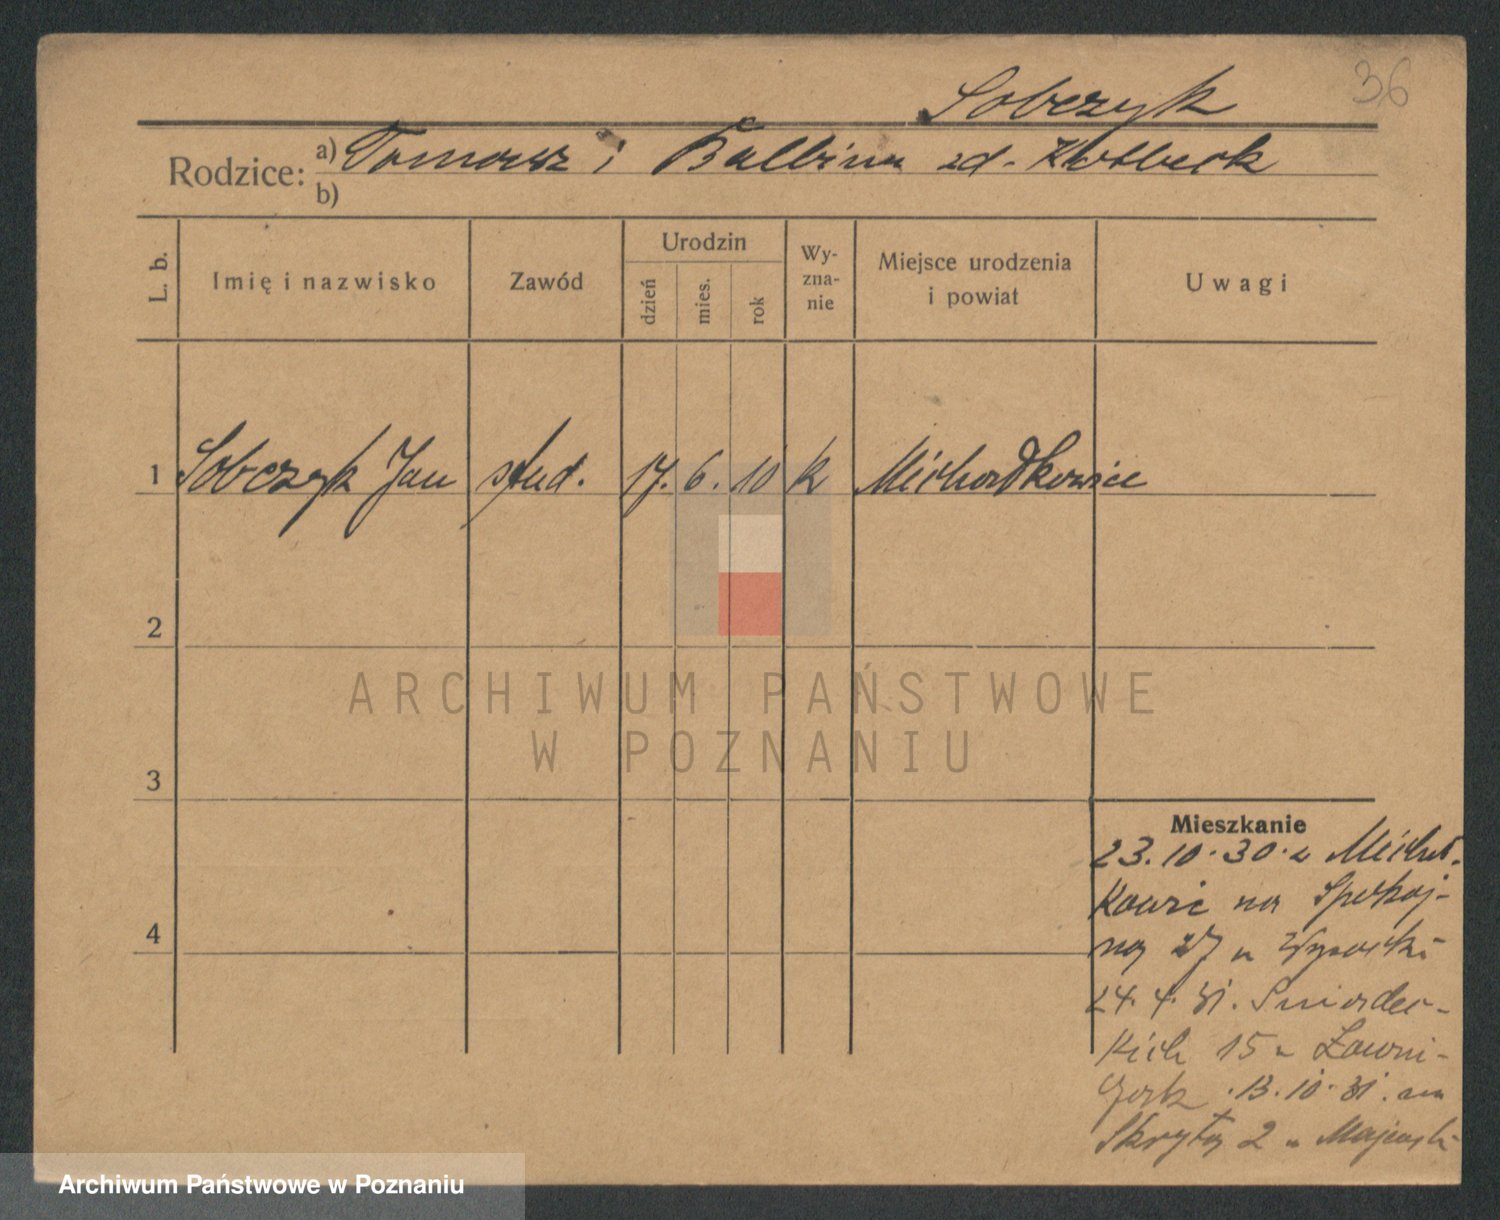 36
Sobczyk
Rodzice: a) Tomasz i Balbina zd.
b)
L. b.
Imię i nazwisko
Zawód
Urodzin
dzień
mies.
rok
Wy-
zna-
nie
Miejsce urodzenia
i powiat
Uwagi
1 Sobczyk Jan stud. 17. 6. 10 k Michałkowice
2
3
4
ARCHIWUM PAŃSTWOWE
W POZNANIU
Mieszkanie
23.10.30. z Michał-
kowic na Spokoj-
ną 27 u Wysocki
24.4.31. Śniadec-
kich 15 u
13.10.31. na
Skrytą 2 u Majewski
Archiwum Państwowe w Poznaniu